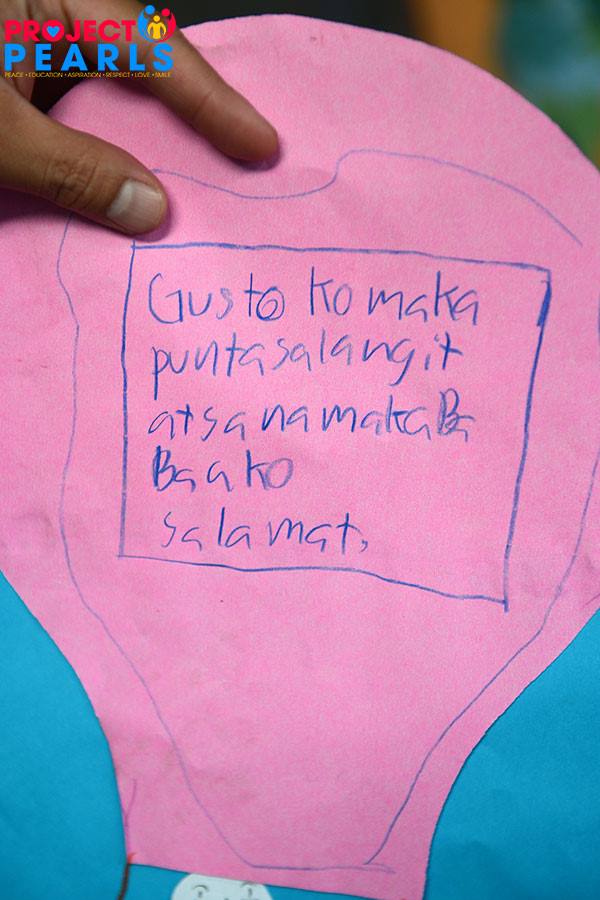 PROJECT
PEARLS
PEACE • EDUCATION • ASPIRATION • RESPECT • LOVE • SMILE
Gusto ko maka
punta sa langit
at sana maka Ba
Ba ako
salamat.